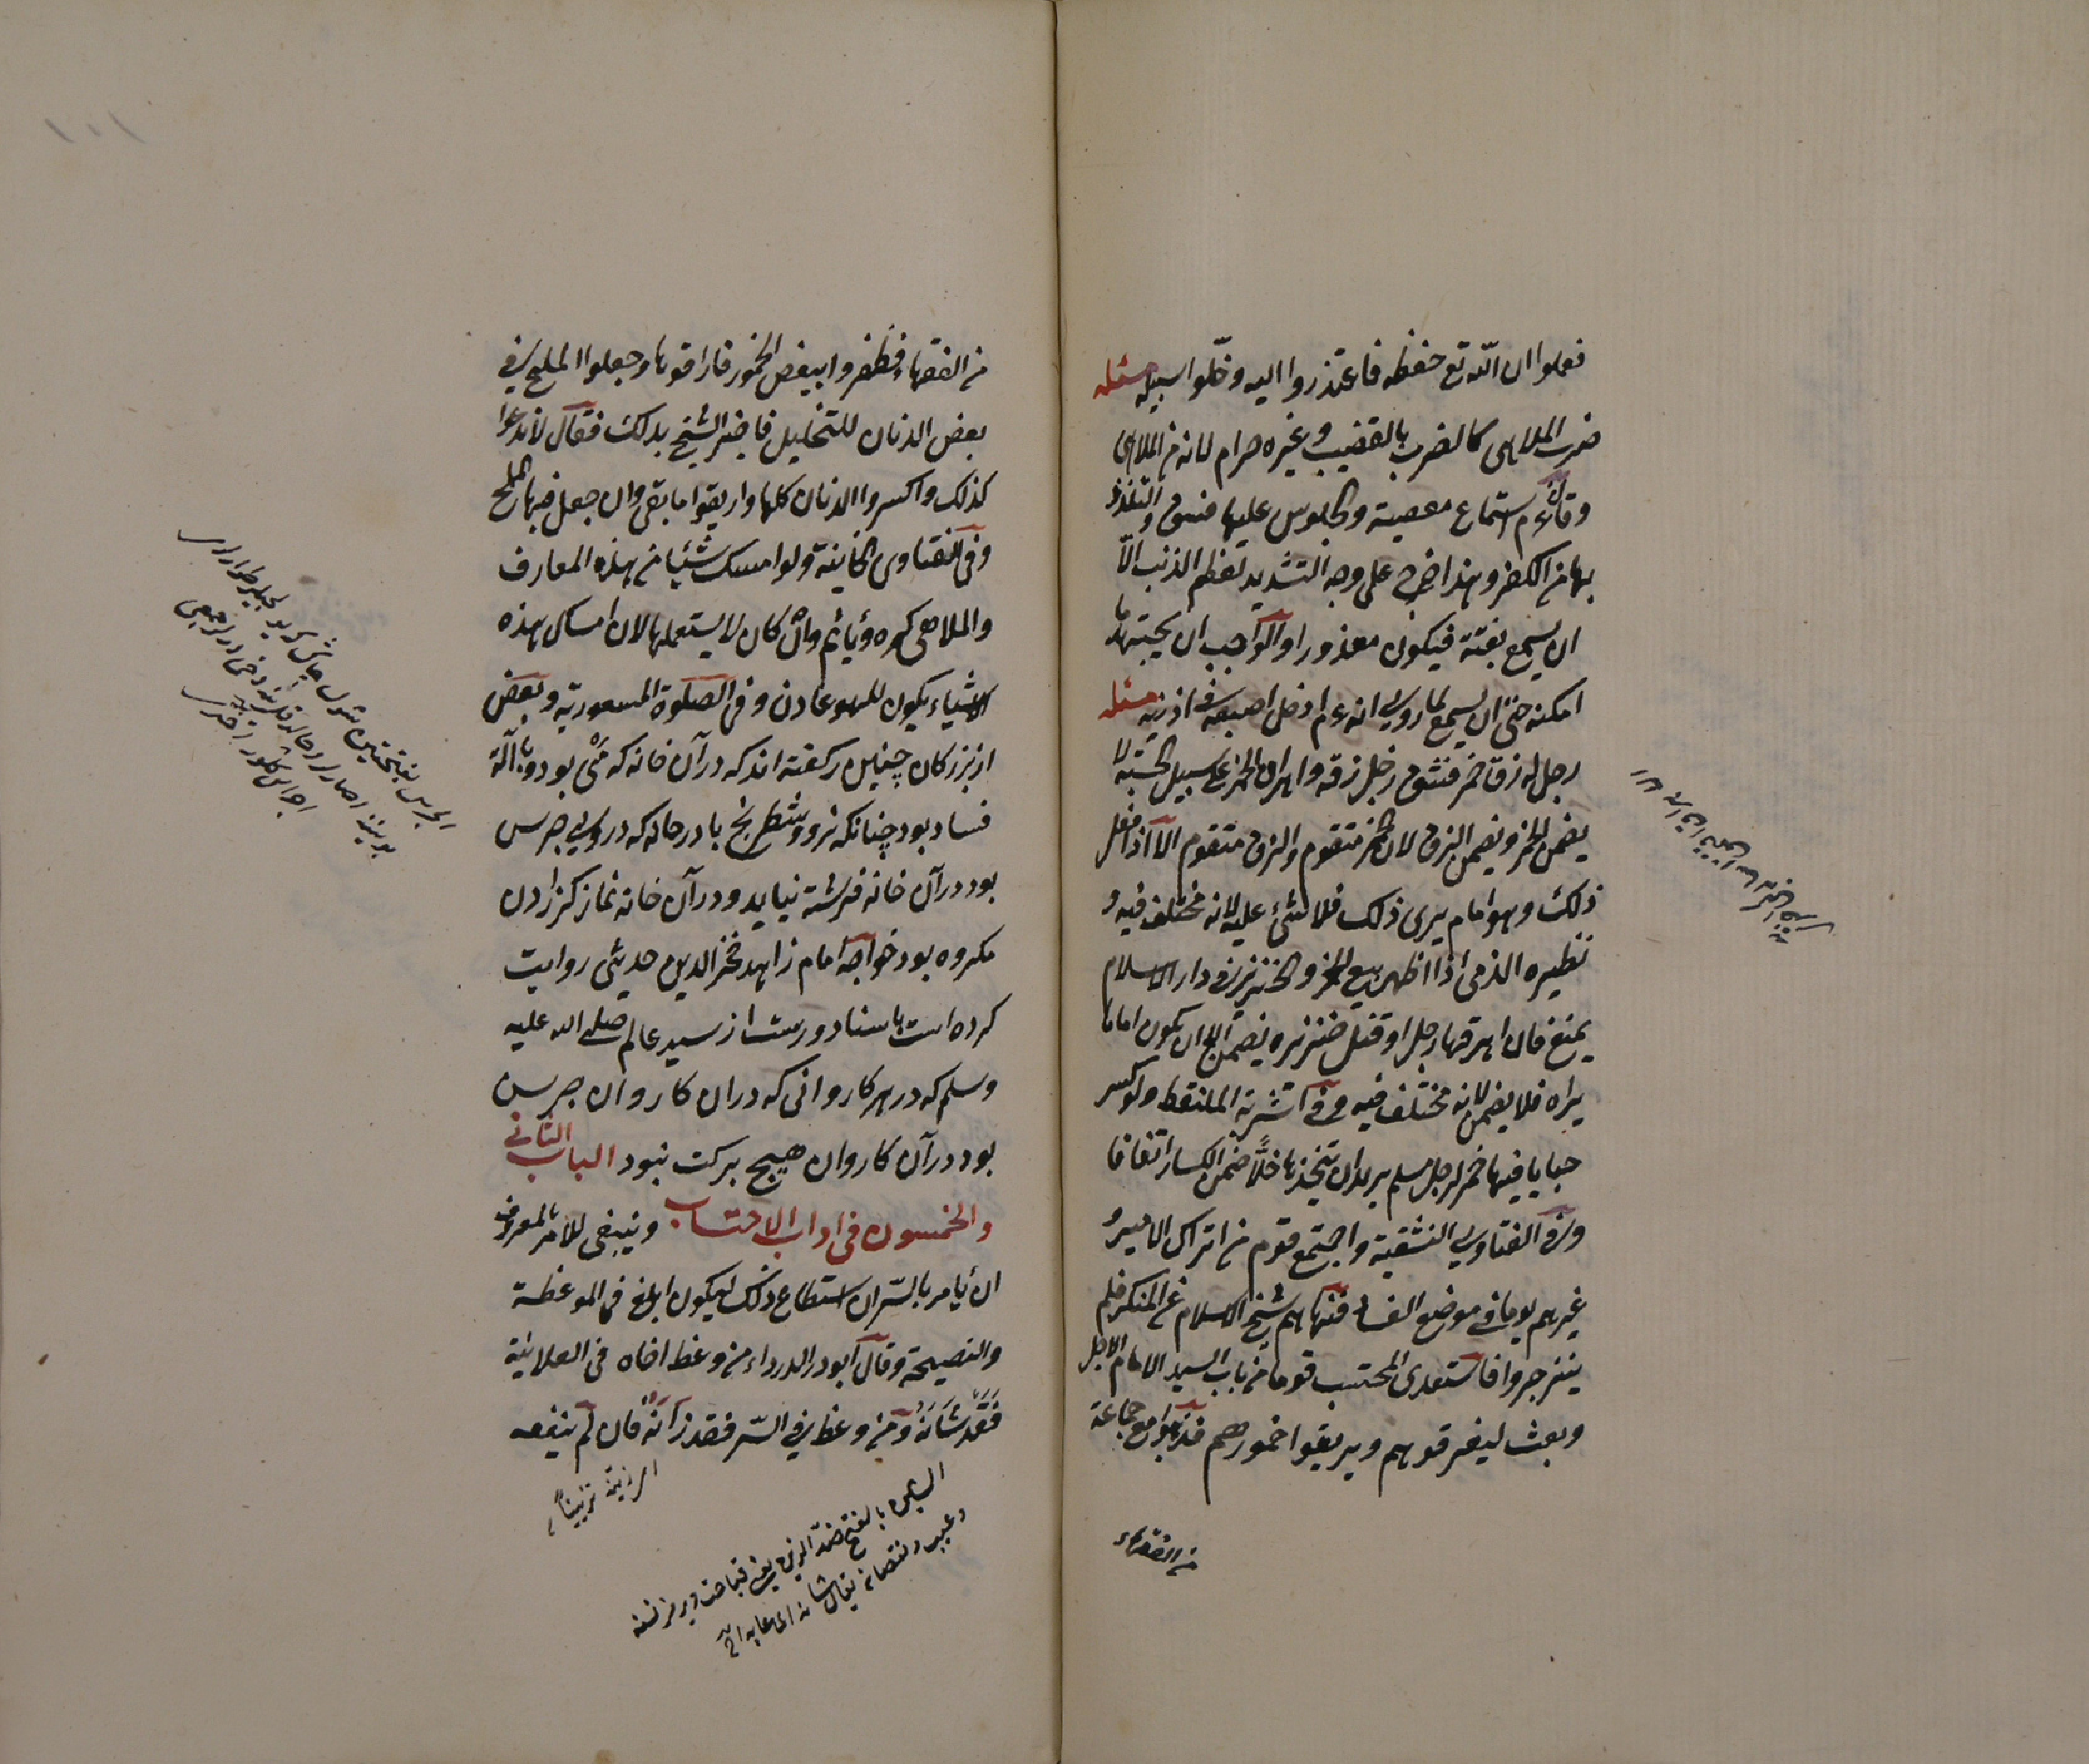 فعلموا ان الله تع حفظه فاعتذروا اليه وخلّوا سبيله مسئله
ضرب الملاهى كالضرب بالقضيب وغيره حرام لانه من الملاهى
وقال ءم استماع معصية والجلوس عليها فسق والتلذذ
بها من الكفر وهذا خرج على وجه التشديد لعظم الذنب الّا
ان يسمع بغتة فيكون معذورا والواجب ان يجتهد ما
امكنه حتى ان لا يسمع لما روى انه ءم ادخل اصبعه فى اذنيه مسئله
رجل له زق خمر فشق رجل زقه واهراق الخمر على سبيل الحسبة لا
يضمن الخمر ويضمن الزق لان الخمر متقوم والزق متقوم الّا اذا فعل
ذلك وهو امام يرى ذلك فلا شئ عليه لانه مختلف فيه و
نظيره الذمى اذا اظهر بيع الخمر والخنزير فى دار الاسلام
يمنع فان اهرقها رجل او قتل خنزيره يضمن الّا ان يكون اماما
يراه فلا يضمن لانه مختلف فيه وفى اشربة الملتقط ولو كسر
حبابا فيها خمر لرجل مسلم يريد ان يتخذها خلًّا ضمن الكسار اتفاقا
وفى الفتاوى النسفية واجتمع قوم من اتراك الامير و
غيرهم يوما فى موضع الفساد فنهاهم شيخ الاسلام عن المنكر فلم
ينزجروا فاستعدى المحتسب قوما من باب السيد الامام الاجل
وبعث ليفرقوهم ويريقوا خمورهم فذهبوا مع جماعة
من الفقهاء
من الفقهاء فظفروا ببعض الخمور فاراقوها وجعلوا الملح فى
بعض الدنان للتخليل فاخبر الشيخ بذلك فقال لا تدعوا
كذلك واكسروا الدنان كلها واريقوا ما بقى وان جعل فيها الملح
وفى الفتاوى الخانية ولو امسك شيئا من هذه المعازف
والملاهى كره ويأثم وان كان لا يستعملها لان امساك هذه
الاشياء يكون للهو عادة وفى الصلوة المسعودية وبعض
از بزركان چنين كفته اند كه در آن خانه كه مى بود ويا آلة
فساد بود چنانكه نرد وشطرنج يا در خانه كه در وى جرس
بود در آن خانه فرشته نيايد ودر آن خانه نماز كزاردن
مكروه بود خواجه امام زاهد فخر الدين حديثى روايت
كرده است باسناد درست از سيد عالم صلى الله عليه
وسلم كه در هر كاروانى كه در ان كاروان جرس
بود در آن كاروان هيچ بركت نبود الباب الثانى
والخمسون فى اداب الاحتساب وينبغى للآمر بالمعروف
ان يأمر بالسّر ان استطاع ذلك ليكون ابلغ فى الموعظة
والنصيحة وقال ابو الدرداء من وعظ اخاه فى العلانية
فَقَد شَانَهُ ومن وعظ فى السّر فقد زَانَهُ فان لم ينفعه
الزينة تزيينا
الشين بالفتح ضد الزين يعنى قباحت
وعيب ونقصان يقال شانه اى عابه